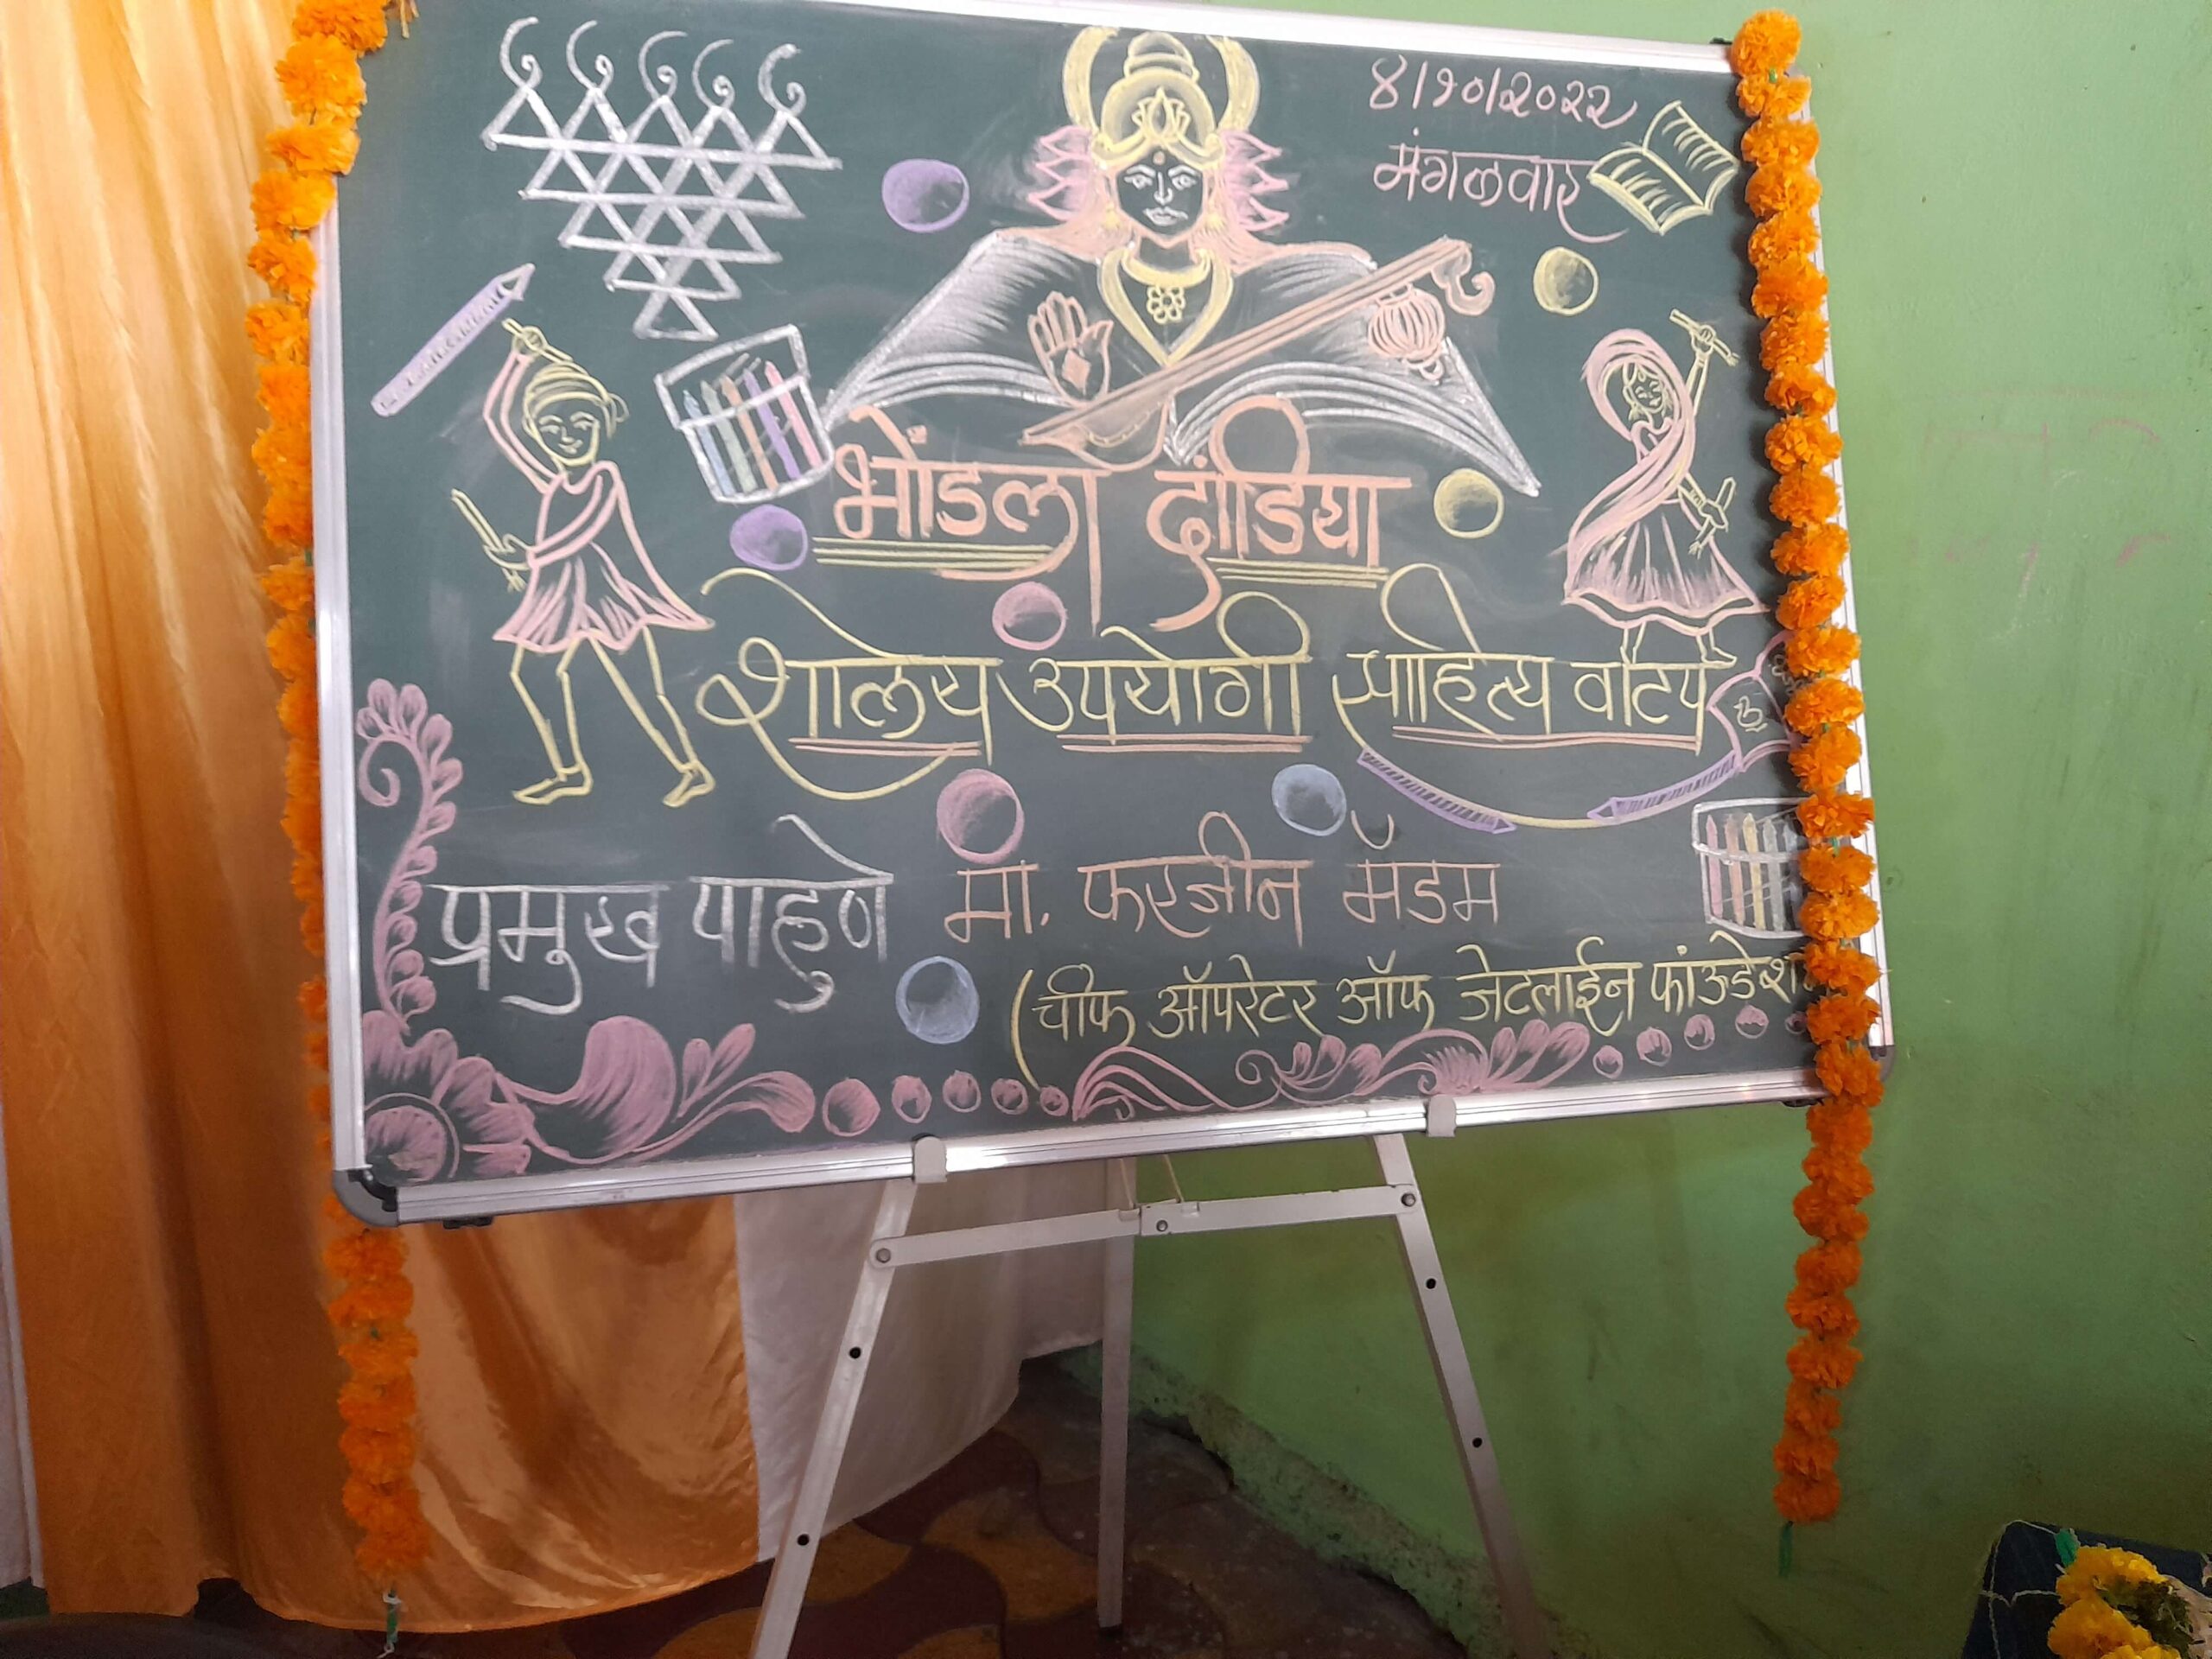 ४/१०/२०२२
मंगळवार
भोंडला दांडिया
शालेय उपयोगी साहित्य वाटप
प्रमुख पाहुणे मा. फरजीन मॅडम
(चीफ ऑपरेटर ऑफ जेटलाईन फांउडेश